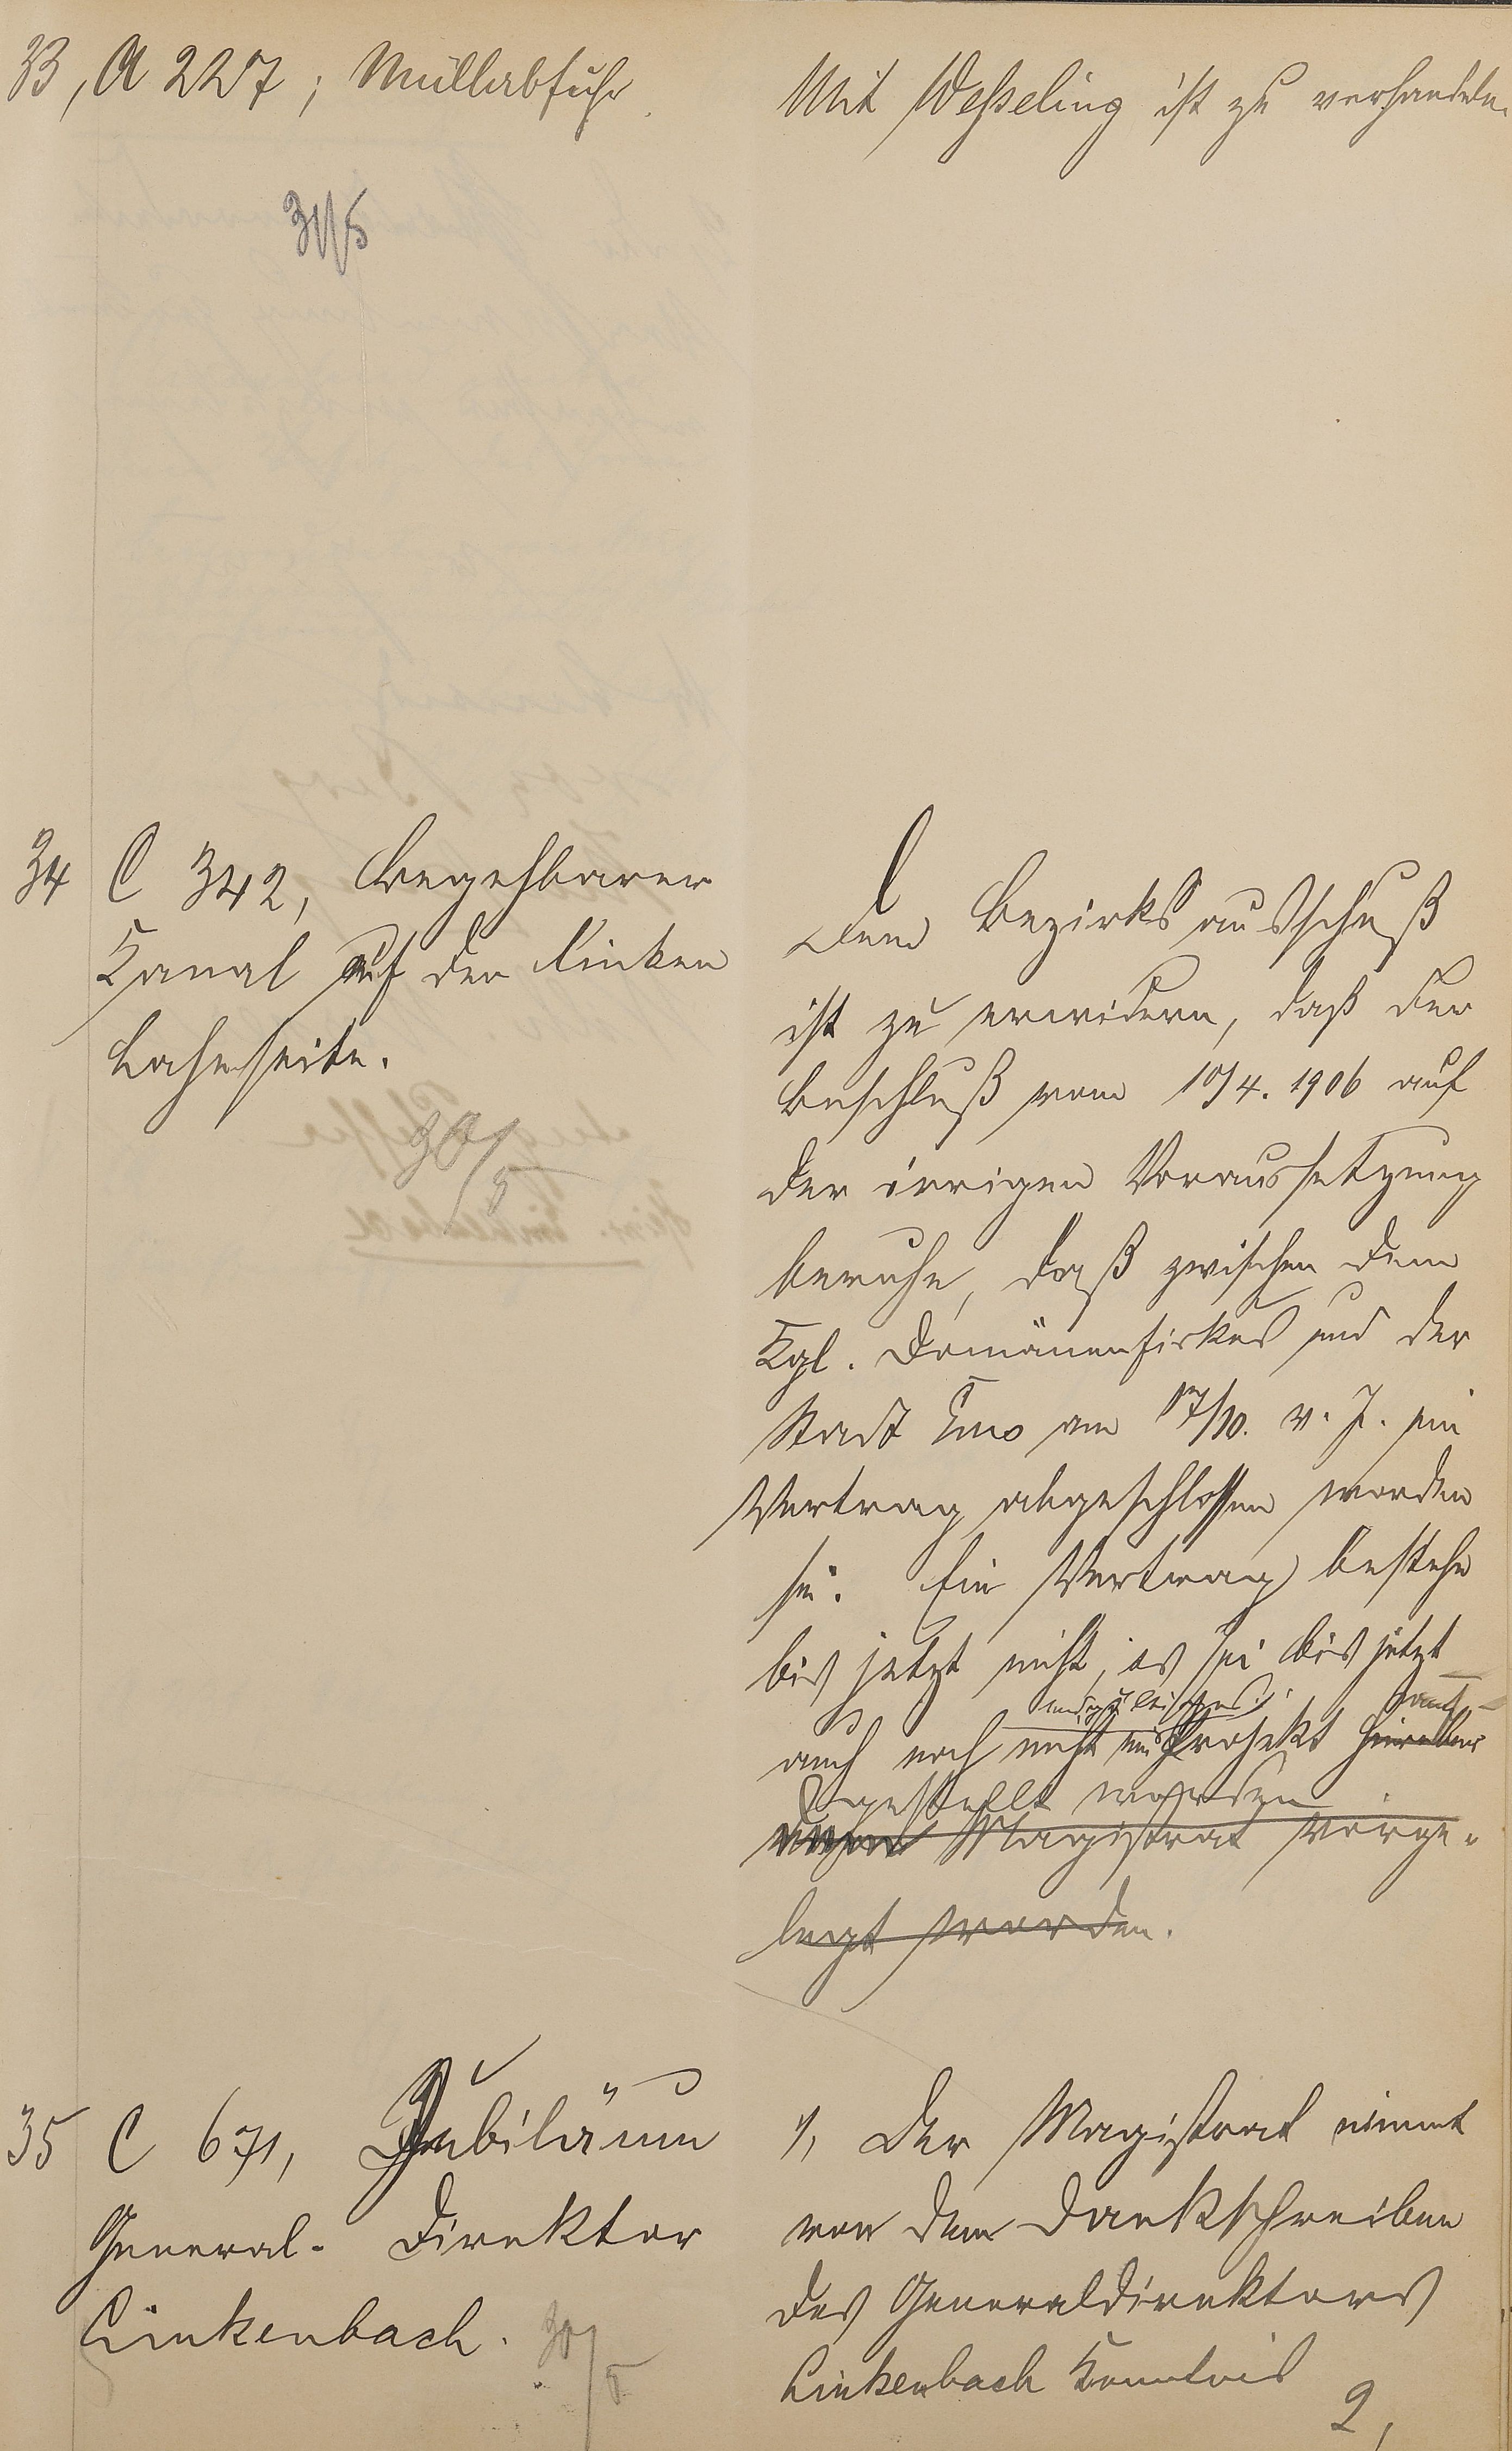 33, A 227; Müllabfuhr.
Mit Wesseling ist zu verhandeln.
31/5
34 C 342, Begehbarer
Kanal auf der linken
Lahnseite.
30/5
Dem Bezirksausschuß
ist zu erwidern, daß der
Beschluß vom 10/4. 1906 auf
der irrigen Voraussetzung
beruhe, daß zwischen dem
Kgl. Domänenfiskus und der
Stadt Ems am 17/10. v. J. ein
Vertrag abgeschlossen worden
sei. Ein Vertrag bestehe
bis jetzt nicht, es sei bis jetzt
endgültiges auf-
auch noch nicht ein Projekt hierüber
gestellt worden
dem Magistrat vorge-
legt worden.
35 C 671, Jubiläum
General-Direktor
Linkenbach.
30/5
1, Der Magistrat nimmt
von dem Dankschreiben
des Generaldirektors
Linkenbach Kenntnis
2,